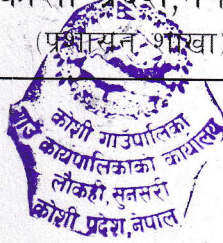 (प्रशासन शाखा)
कोशी गाउँपालिका
गाउँ कार्यपालिकाको कार्यालय
लौकही, सुनसरी
कोशी प्रदेश, नेपाल